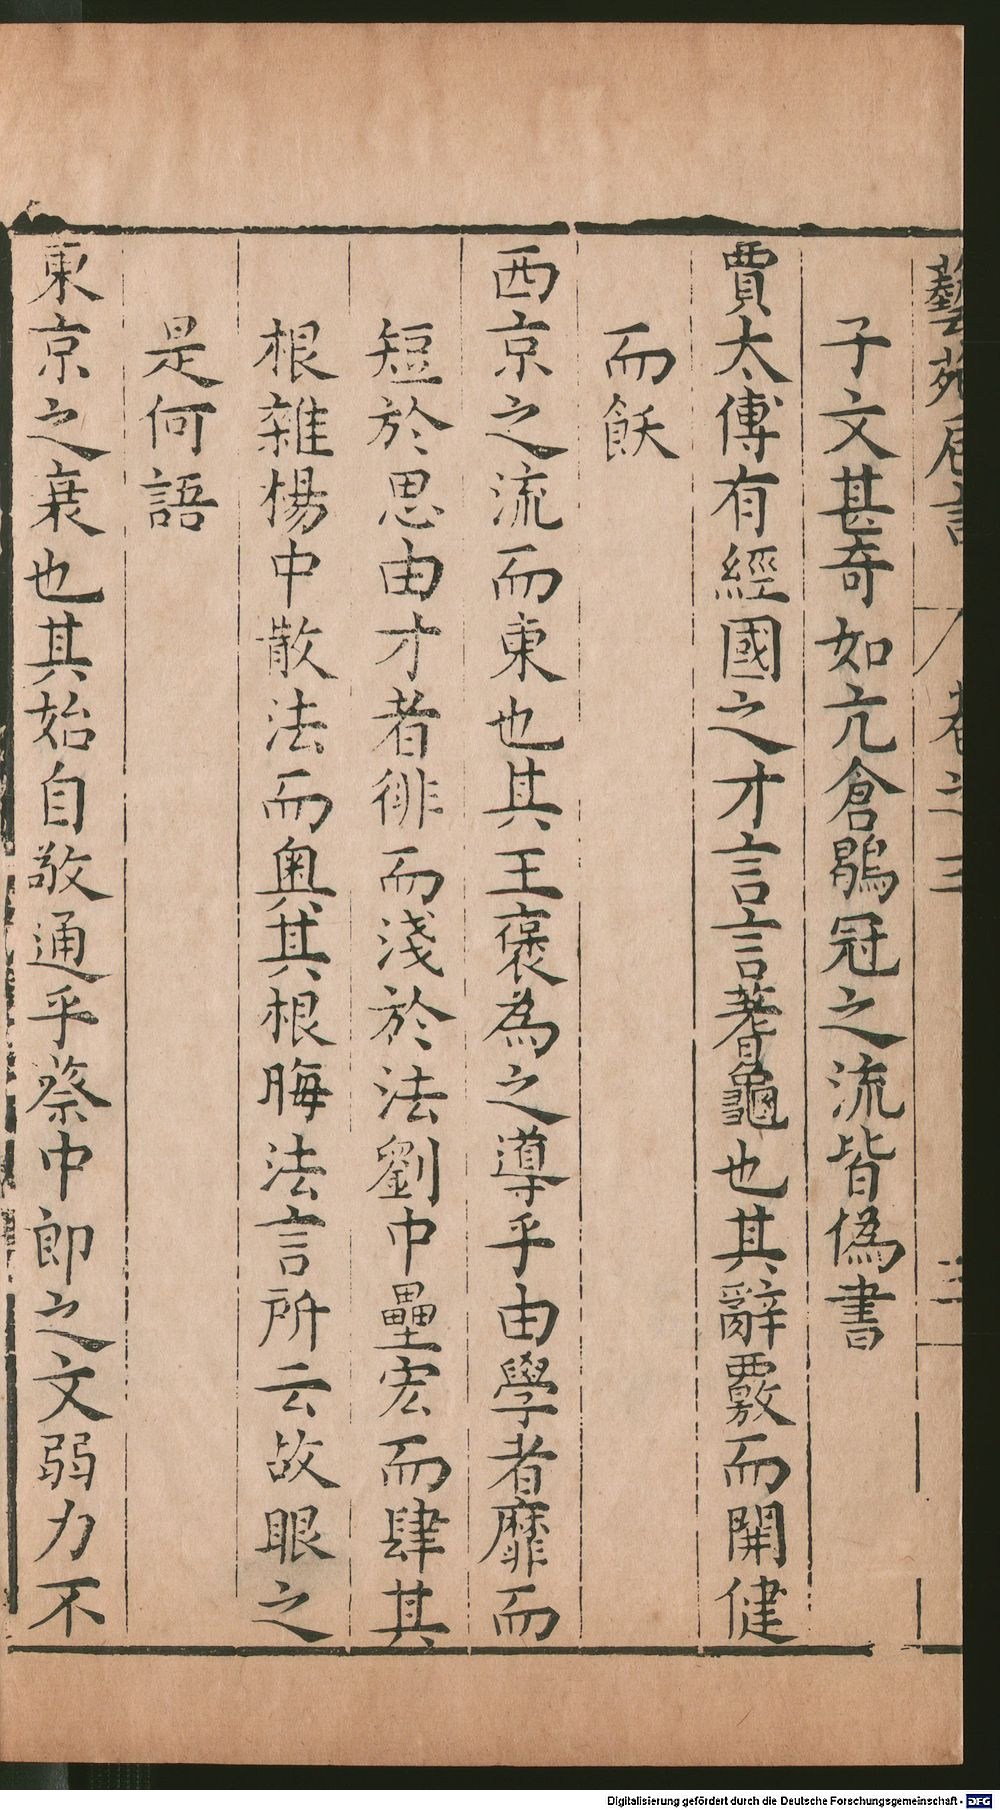 藝苑卮言 卷之三 三
子文甚奇如亢倉鶡冠之流皆偽書
賈太傅有經國之才言言蓍龜也其辭覈而開健
而飫
西京之流而東也其王褒為之導乎由學者靡而
短於思由才者俳而淺於法劉中壘宏而肆其
根雜楊中散法而奧其根晦法言所云故眼之
是何語
東京之衰也其始自敬通乎蔡中郎之文弱力不
Digitalisierung gefördert durch die Deutsche Forschungsgemeinschaft - DFG